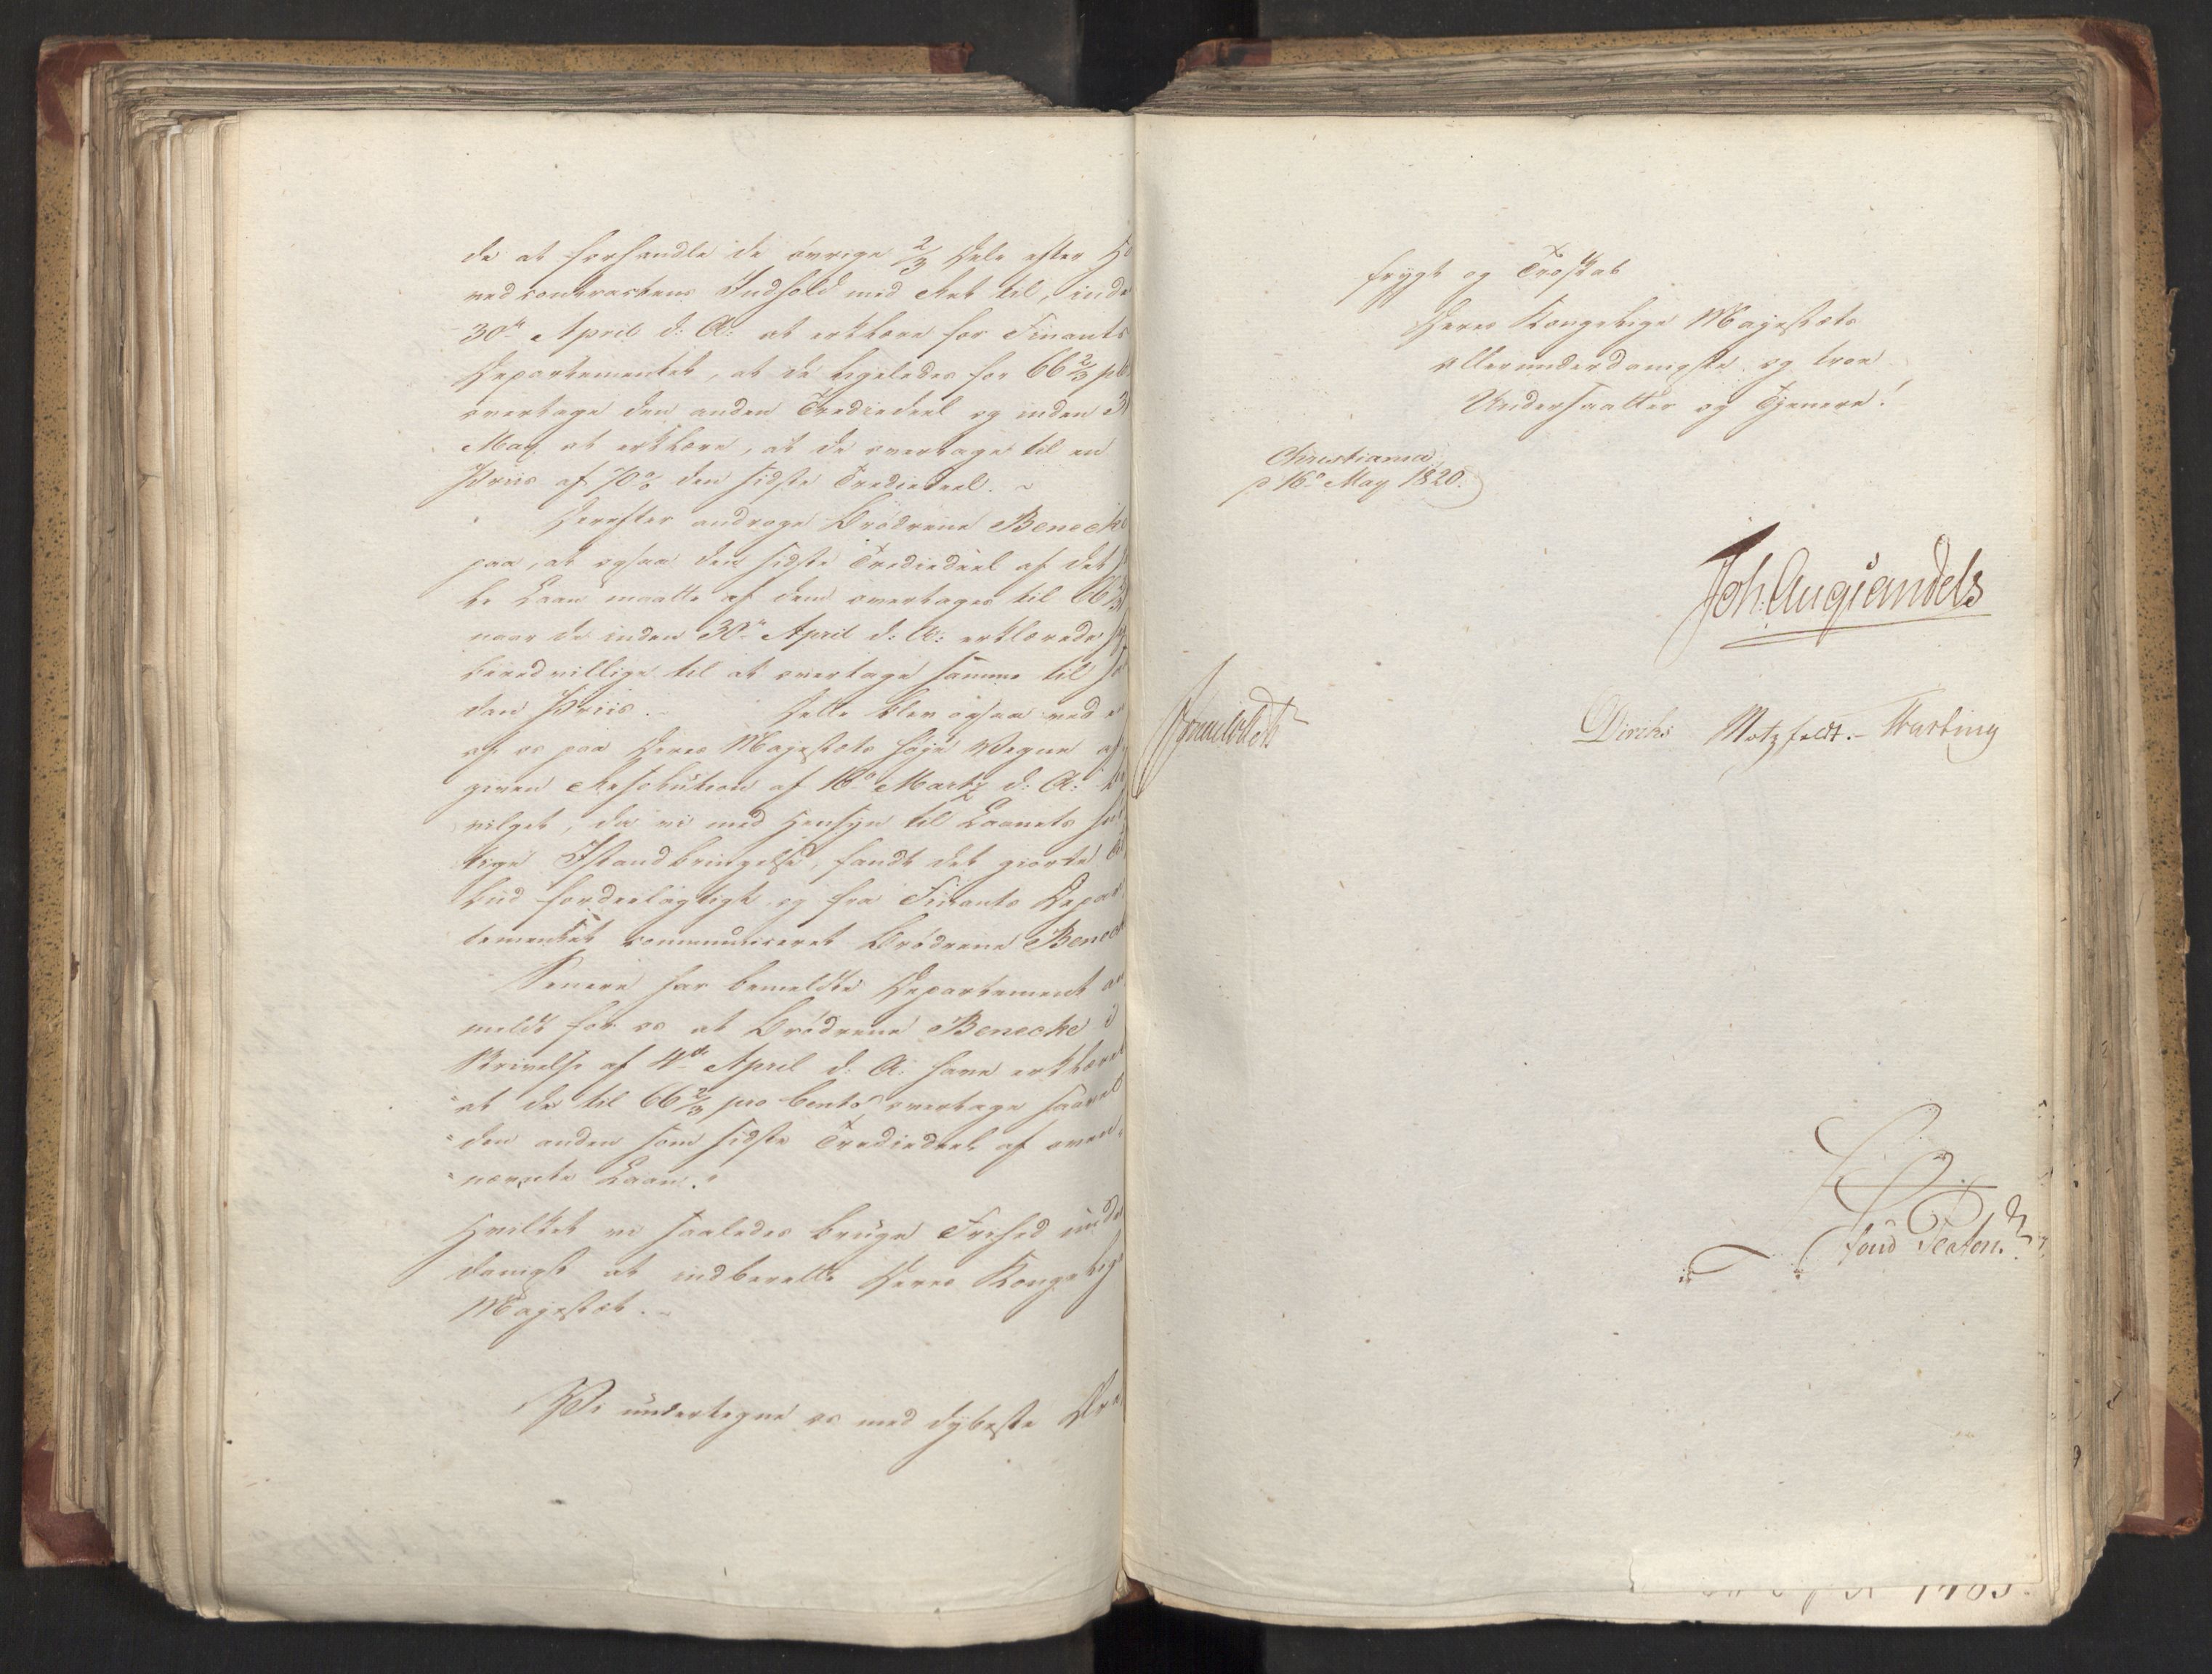 de at forhandle de övrige 2/3 Dele efter Ho
vedcontractens Indhold med Ret til, inde
30te April d: A: at erklære for Finants
Departementet, at de ligeledes for 66 2/3 pC
overtage den anden Trediedeel og inden 31
May at erklære, at de overtage til en
Priis af 70% den sidste Trediedeel. ~
Derefter androge Brödrene Benecke
paa, at ogsaa den sidste Trediedeel af det
te Laan maatte af dem overtages til 66 2/3
naar de inden 30te April d: A: erklærede sig
beredvillige til at overtage samme til
den Priis. Dette blev ogsaa ved
af os paa Deres Majestæts höje Vegne af
given Resolution af 16de Martz d: A: be
vilget, da vi med Hensyn til Laanets
tige Istandbringelse, fandt det giorte Til
bud fordeelagtigt og fra Finants Depar
tementet communiceret Brödrene Beneck
Senere har bemeldte Departement an
meldt for os at Brödrene Benecke i
Skrivelse af 4de April d. A. have erklæret
"at de til 66 2/3 pro Cento overtage saavel
"den anden som sidste Trediedeel af oven
"nævnte Laan."
Hvilket vi saaledes bruge Frihed under
danigst at indberette Deres Kongelige
Majestæt. ~
Vi undertegne os med dybeste Ær
frygt og Troskab
Deres Kongelige Majestæts
allerunderdanigste og troe
Undersaatter og Tjenere!
Christiania
d 16de May 1820.
Joh: Aug: Sandels
Sommerhielm
Diriks Motzfeldt. - Krarting